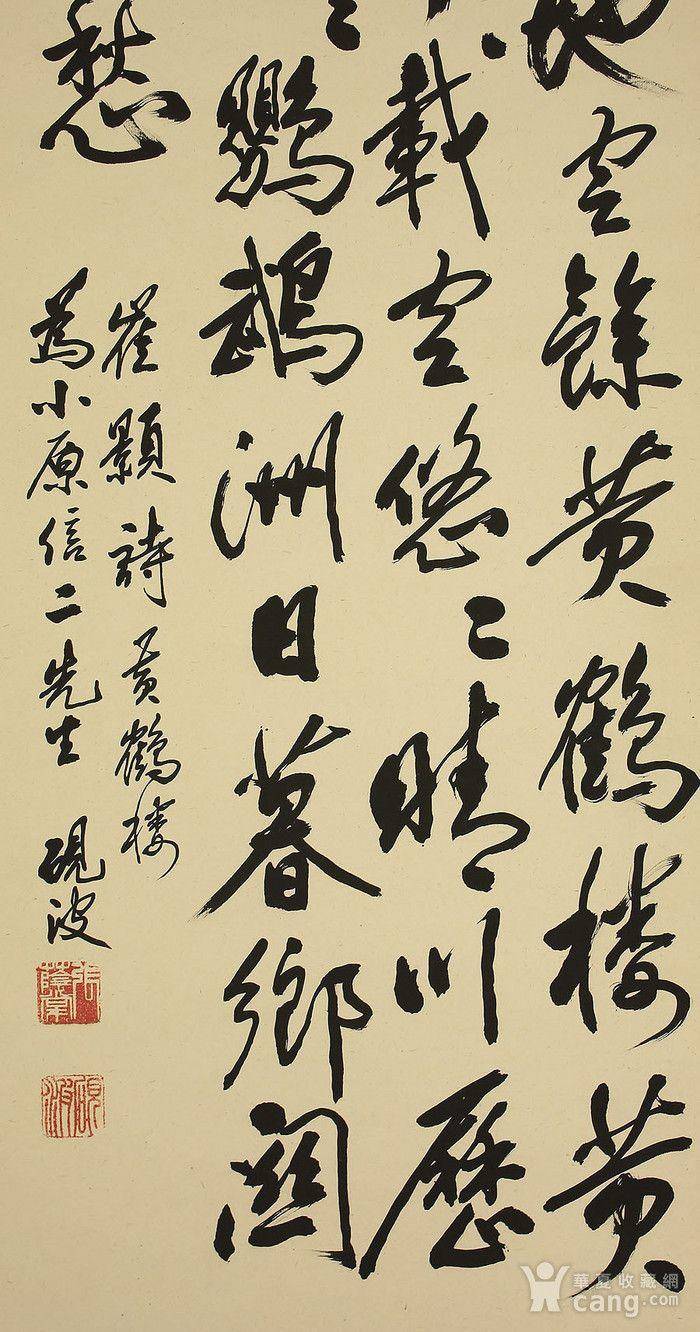 地空餘黄鶴楼黄
載空悠〻晴川歷
〻鸚鵡洲日暮鄉關
愁
崔顥詩黄鶴楼
為小原信二先生 硯波
硯波
華夏收藏網
cang.com